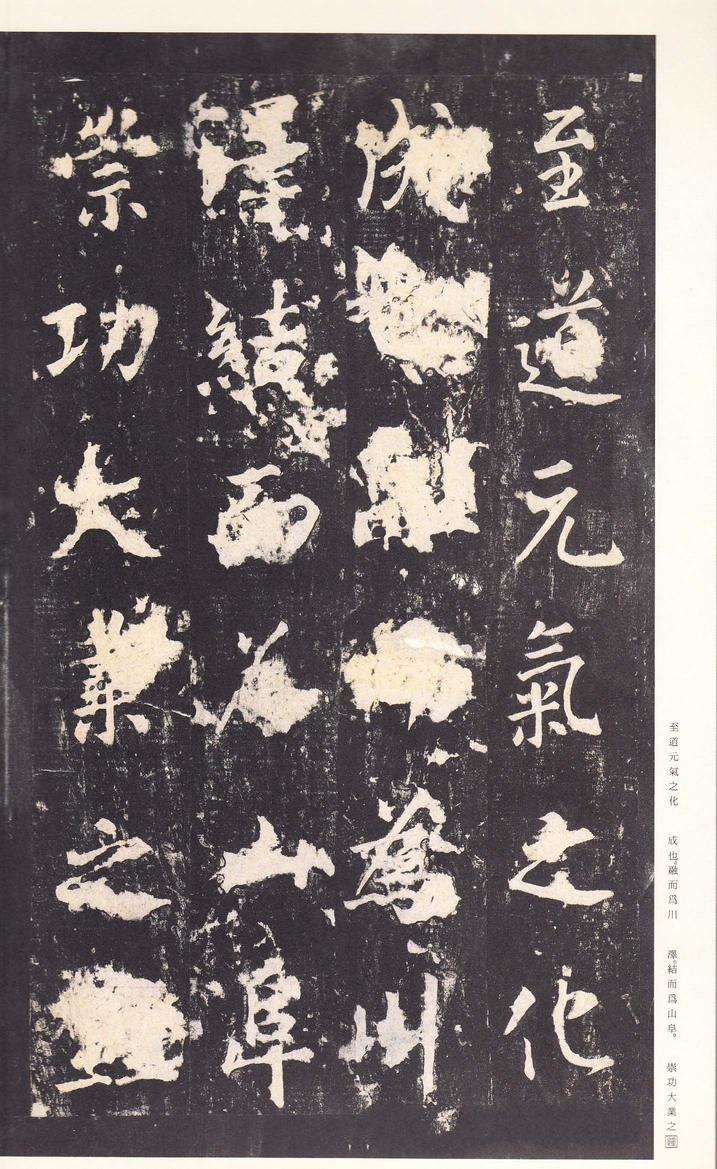 至道元氣之化
成也融而爲川
澤結而爲山阜
崇功大業之
至道元氣之化 成也。融而爲川 澤。結而爲山阜。 崇功大業之